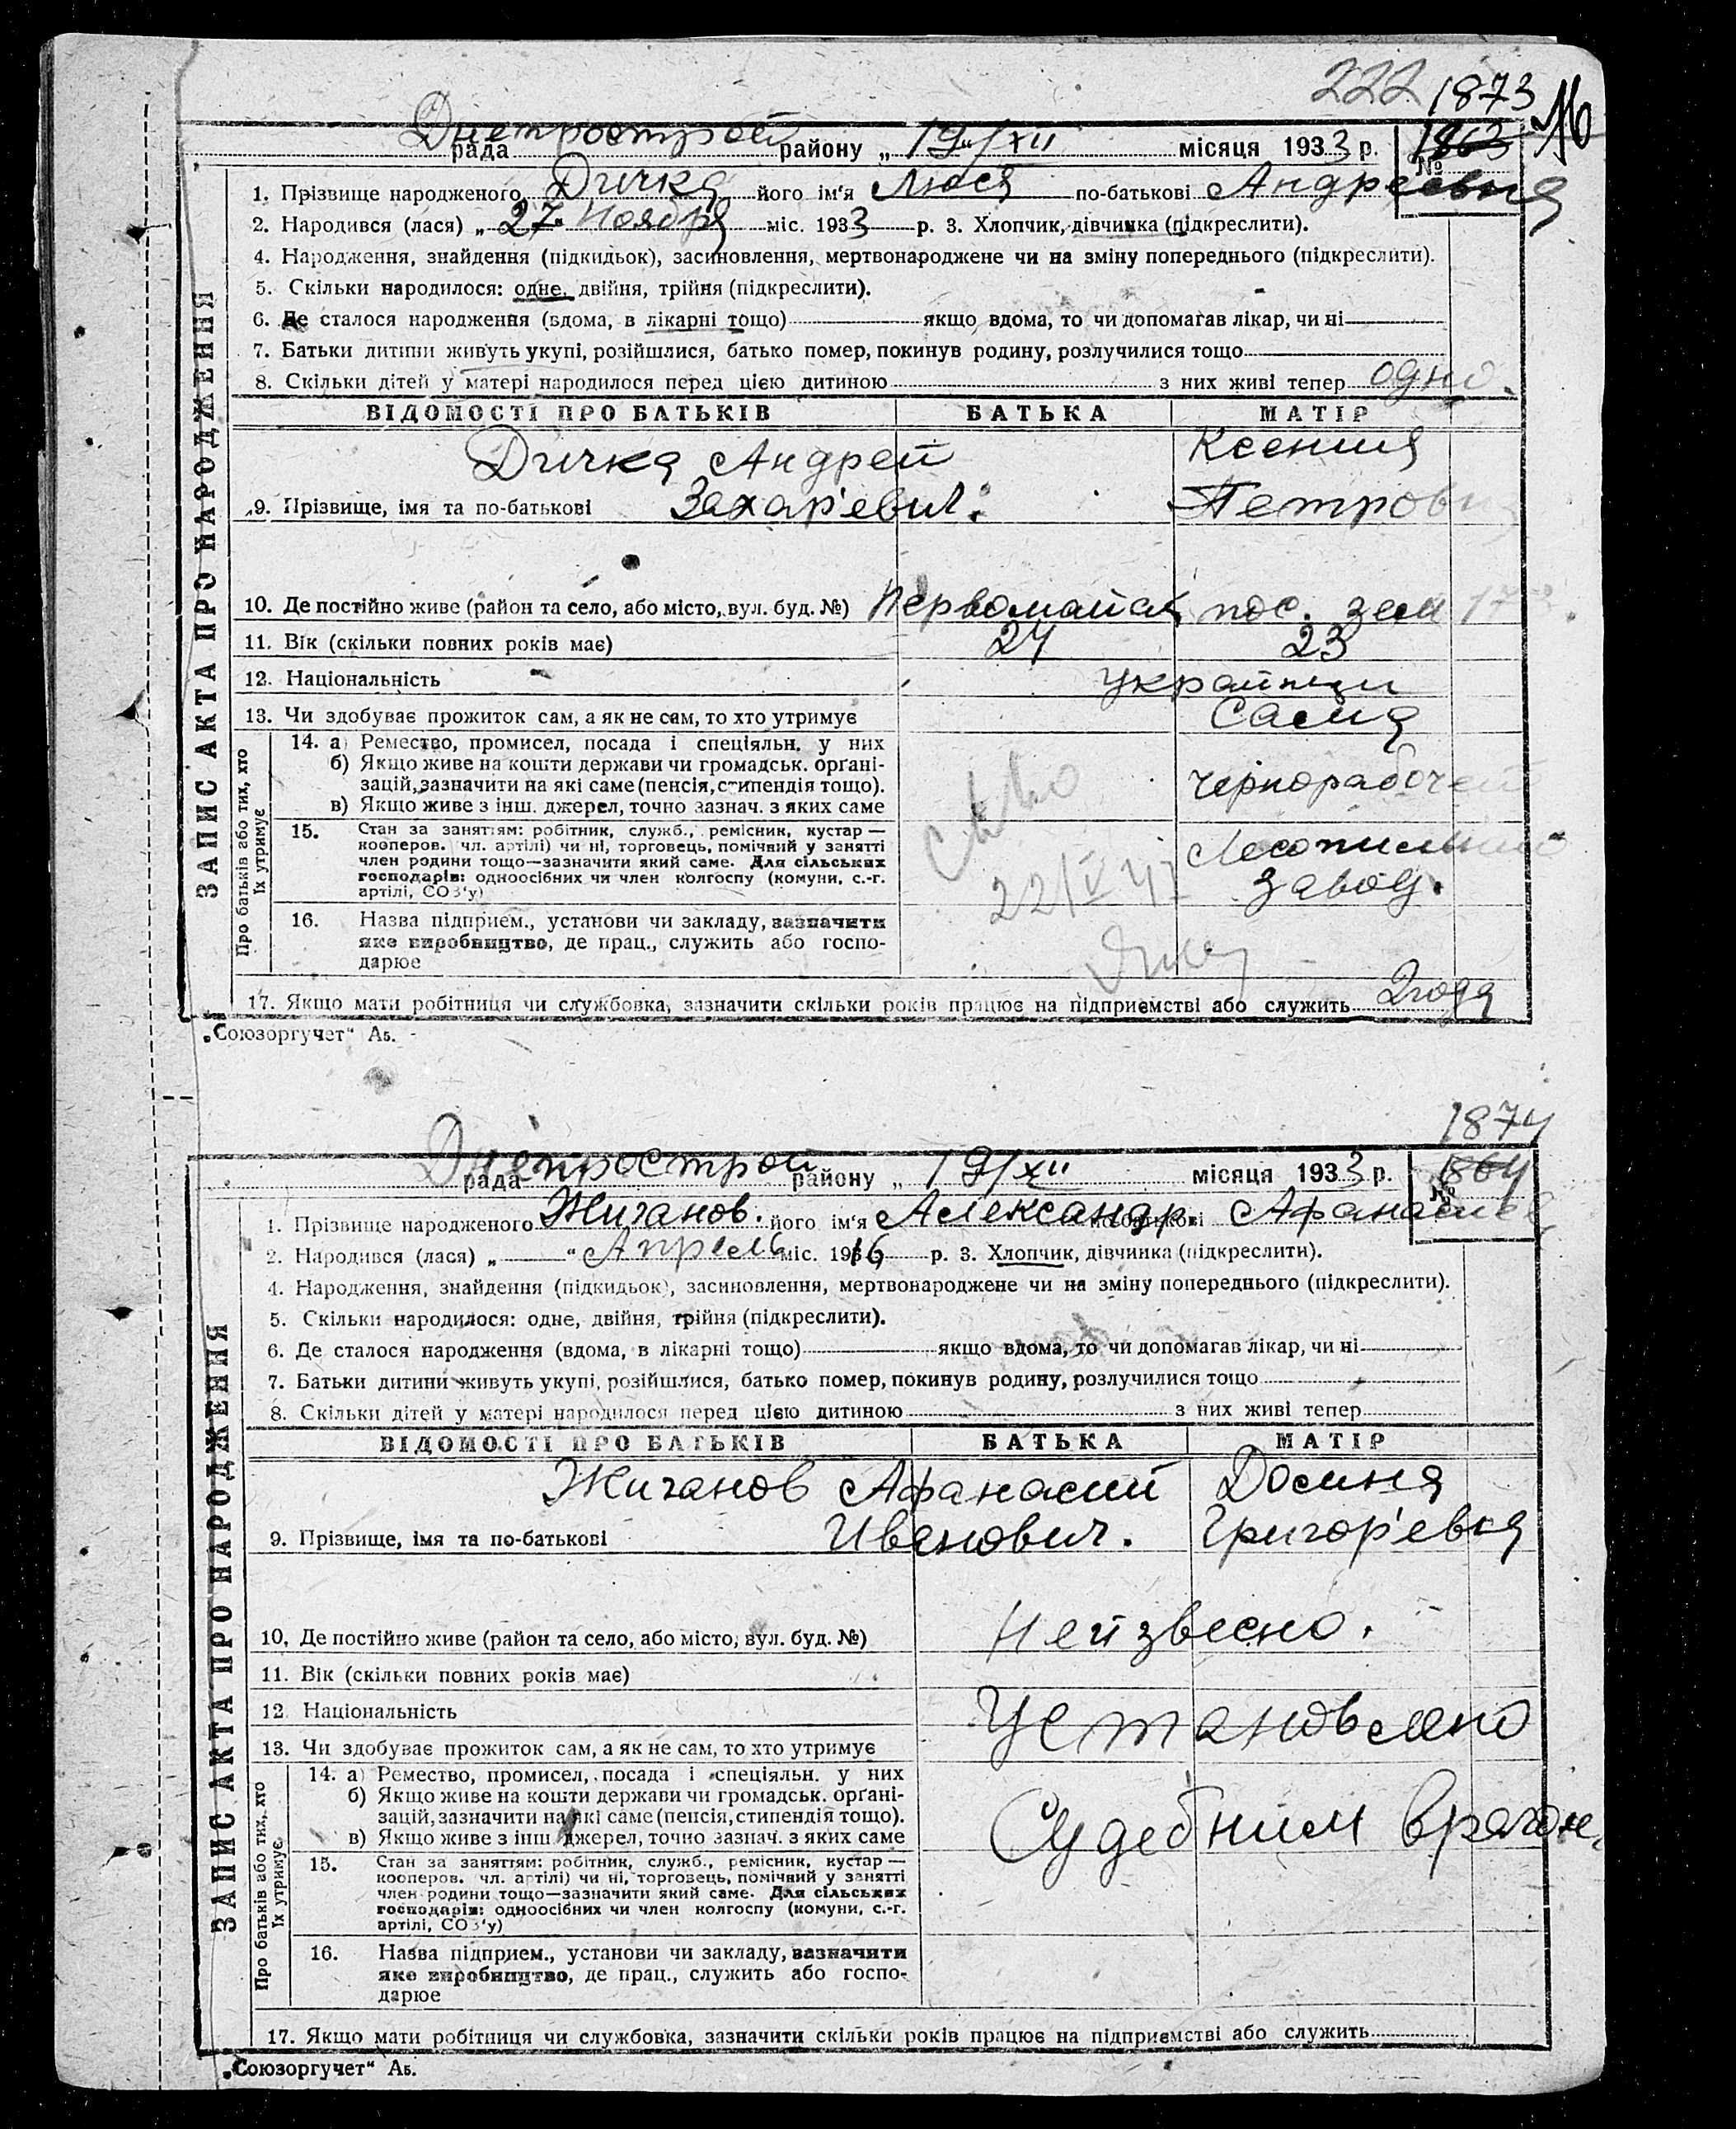 222 1873 16
Днепрострой
рада района „ 19/XII місяця 1933 р. № 1863
1. Прізвище народженого Дичка його ім'я Люся по-батькові Андреевна
2. Народився (лася) „ 27 " Ноября міс. 1933 р. 3. Хлопчик, дівчинка (підкреслити).
4. Народження, знайдення (підкидьок), засиновлення, мертвонароджене чи на зміну попереднього (підкреслити).
5. Скільки народилося: одне, двійня, трійня (підкреслити).
6. Де сталося народження (вдома, в лікарні тощо) якщо вдома, то чи допомагав лікар, чи ні
7. Батьки дитини живуть укупі, розійшлися, батько помер, покинув родину, розлучилися тощо
8. Скільки дітей у матері народилося перед цією дитиною з них живі тепер одно.
ЗАПИС АКТА ПРО НАРОДЖЕННЯ
ВІДОМОСТІ ПРО БАТЬКІВ БАТЬКА МАТІР
Дичка Андрей Ксения
9. Прізвище, імя та по-батькові Захарьевич. Петровна
10. Де постійно живе (район та село, або місто, вул. буд. №) Первомайск пос. зем 17
11. Вік (скільки повних років має) 24 23
12. Національність украинци
13. Чи здобуває прожиток сам, а як не сам, то хто утримує Сама
Про батьків або тих, хто їх утримує
14. а) Ремество, промисел, посада і спеціяльн. у них
б) Якщо живе на кошти держави чи громадськ. орґані-
зацій, зазначити на які саме (пенсія, стипендія тощо). чернорабочей
в) Якщо живе з інш. джерел, точно зазнач. з яких саме
15. Стан за заняттям: робітник, служб., ремісник, кустар —
кооперов. чл. артілі) чи ні, торговець, помічний у занятті
член родини тощо—зазначити який саме. Для сільських
господарів: одноосібних чи член колгоспу (комуни, с.-г.
артілі, СОЗ'у)
Лесопильный
завод.
22/V 47
16. Назва підприєм., установи чи закладу, зазначити
яке виробництво, де прац., служить або госпо-
дарює
17. Якщо мати робітниця чи службовка, зазначити скільки років працює на підприємстві або служить 2 года
„Союзоргучет" Аб.
1874
Днепрострой
рада району „ 19/XII місяця 1933 р. № 1864
1. Прізвище народженого Жиганов. його ім'я Александр. по-батькові
2. Народився (лася) „ " Апрель міс. 1916 р. 3. Хлопчик, дівчинка (підкреслити).
4. Народження, знайдення (підкидьок), засиновлення, мертвонароджене чи на зміну попереднього (підкреслити).
5. Скільки народилося: одне, двійня, трійня (підкреслити).
6. Де сталося народження (вдома, в лікарні тощо) якщо вдома, то чи допомагав лікар, чи ні
7. Батьки дитини живуть укупі, розійшлися, батько помер, покинув родину, розлучилися тощо
8. Скільки дітей у матері народилося перед цією дитиною з них живі тепер
ЗАПИС АКТА ПРО НАРОДЖЕННЯ
ВІДОМОСТІ ПРО БАТЬКІВ БАТЬКА МАТІР
Жиганов Афанасий Досиня
9. Прізвище, імя та по-батькові Иванович. Григорьевна
10. Де постійно живе (район та село, або місто, вул. буд. №) Неизвесно.
11. Вік (скільки повних років має)
12. Національність Установлено
13. Чи здобуває прожиток сам, а як не сам, то хто утримує
Про батьків або тих, хто їх утримує
14. а) Ремество, промисел, посада і спеціяльн. у них
б) Якщо живе на кошти держави чи громадськ. орґані-
зацій, зазначити на які саме (пенсія, стипендія тощо). Судебним врачом.
в) Якщо живе з інш джерел, точно зазнач. з яких саме
15. Стан за заняттям: робітник, служб., ремісник, кустар —
кооперов. чл. артілі) чи ні, торговець, помічний у занятті
член родини тощо—зазначити який саме. Для сільських
господарів: одноосібних чи член колгоспу (комуни, с.-г.
артілі, СОЗ'у)
16. Назва підприєм., установи чи закладу, зазначити
яке виробництво, де прац., служить або госпо-
дарює
17. Якщо мати робітниця чи службовка, зазначити скільки років працює на підприємстві або служить
„Союзоргучет" Аб.